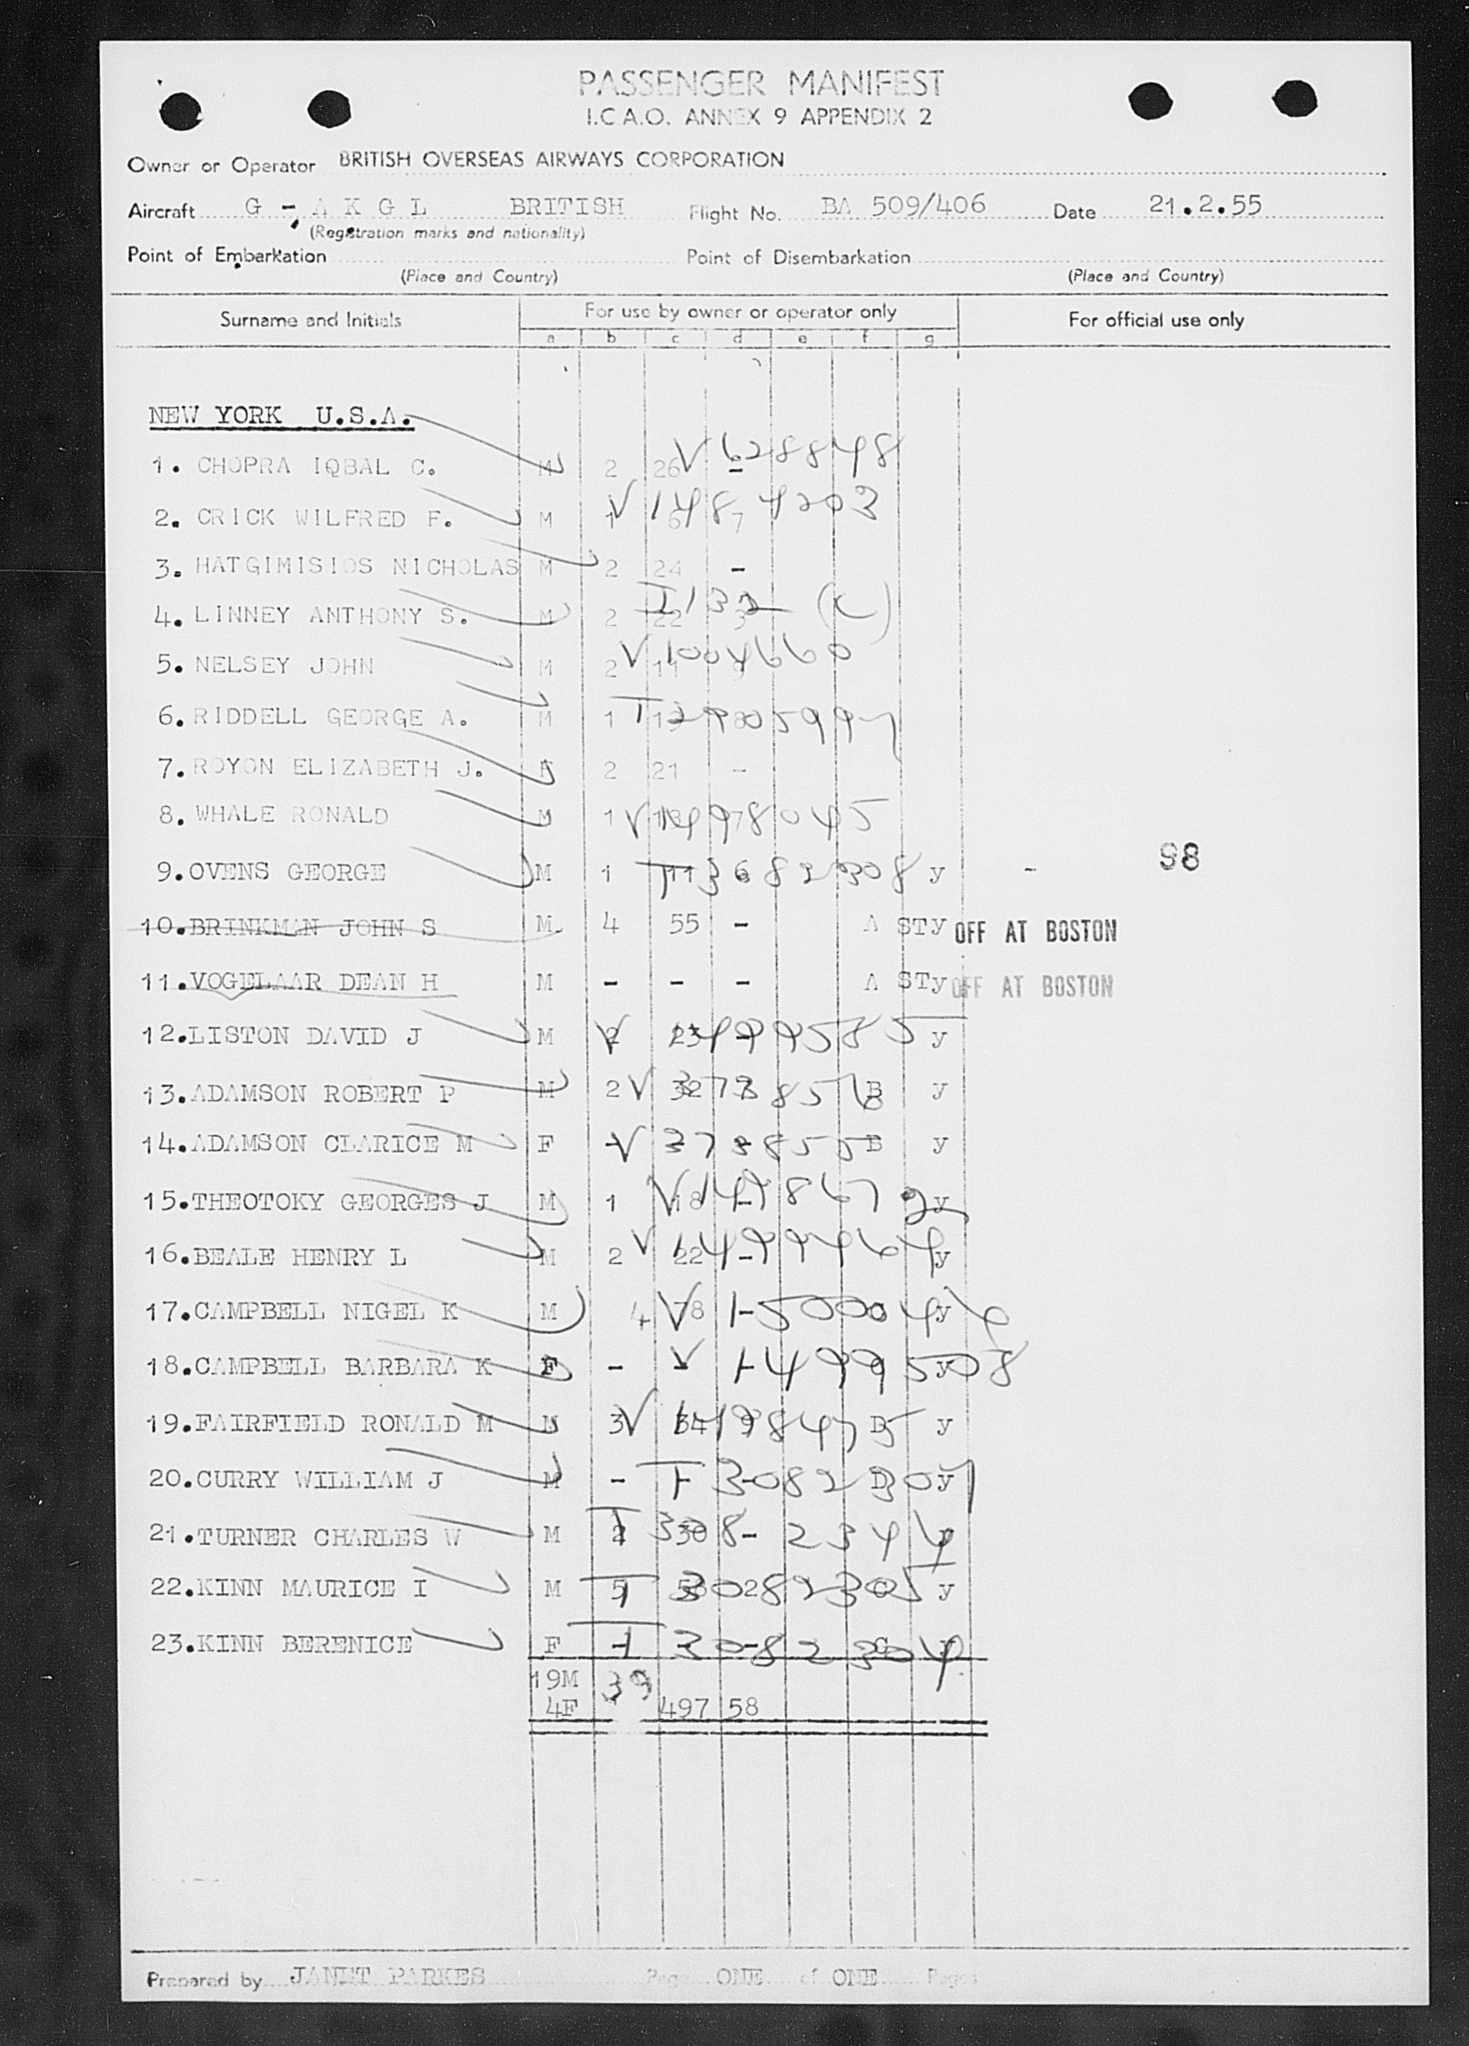 PASSENGER MANIFEST
I.C.A.O. ANNEX 9 APPENDIX 2
Owner or Operator BRITISH OVERSEAS AIRWAYS CORPORATION
Aircraft G - A K G L BRITISH Flight No. BA 509/406 Date 21.2.55
(Registration marks and nationality)
Point of Embarkation Point of Disembarkation
(Place and Country) (Place and Country)
Surname and Initials For use by owner or operator only For official use only
a b c d e f g
NEW YORK U.S.A.
1. CHOPRA IQBAL C. M 2 26 - V 628848
2. CRICK WILFRED F. M 1 6 7 V 1484203
3. HATGIMISIOS NICHOLAS M 2 24 -
4. LINNEY ANTHONY S. M 2 22 3 T132 (C)
5. NELSEY JOHN M 2 11 9 V 1004660
6. RIDDELL GEORGE A. M 1
7. ROYON ELIZABETH J. F 2 21 -
8. WHALE RONALD M 1 V 1498045
9. OVENS GEORGE M 1 11 6 y - 98
10. BRINKMAN JOHN S M 4 55 - A STy OFF AT BOSTON
11. VOGELAAR DEAN H M - - - A STy OFF AT BOSTON
12. LISTON DAVID J M 2 23 - V 1499585 y
13. ADAMSON ROBERT P M 2 32 V B y
14. ADAMSON CLARICE M F - V 373855 B y
15. THEOTOKY GEORGES J M 1 18 - V y
16. BEALE HENRY L M 2 22 - V 1499464 y
17. CAMPBELL NIGEL K M 4 78 - V 1500046 y
18. CAMPBELL BARBARA K F - - - V 1499508 y
19. FAIRFIELD RONALD M M 3 34 9 V B y
20. CURRY WILLIAM J M - - - T 3082307 y
21. TURNER CHARLES W M 2 30 - T 3382344 y
22. KINN MAURICE I M 5 2 T 3082305 C y
23. KINN BERENICE F - - - T 3082304 C y
19M 39
4F 497 58
Prepared by JANET PARKES Page ONE of ONE Pages